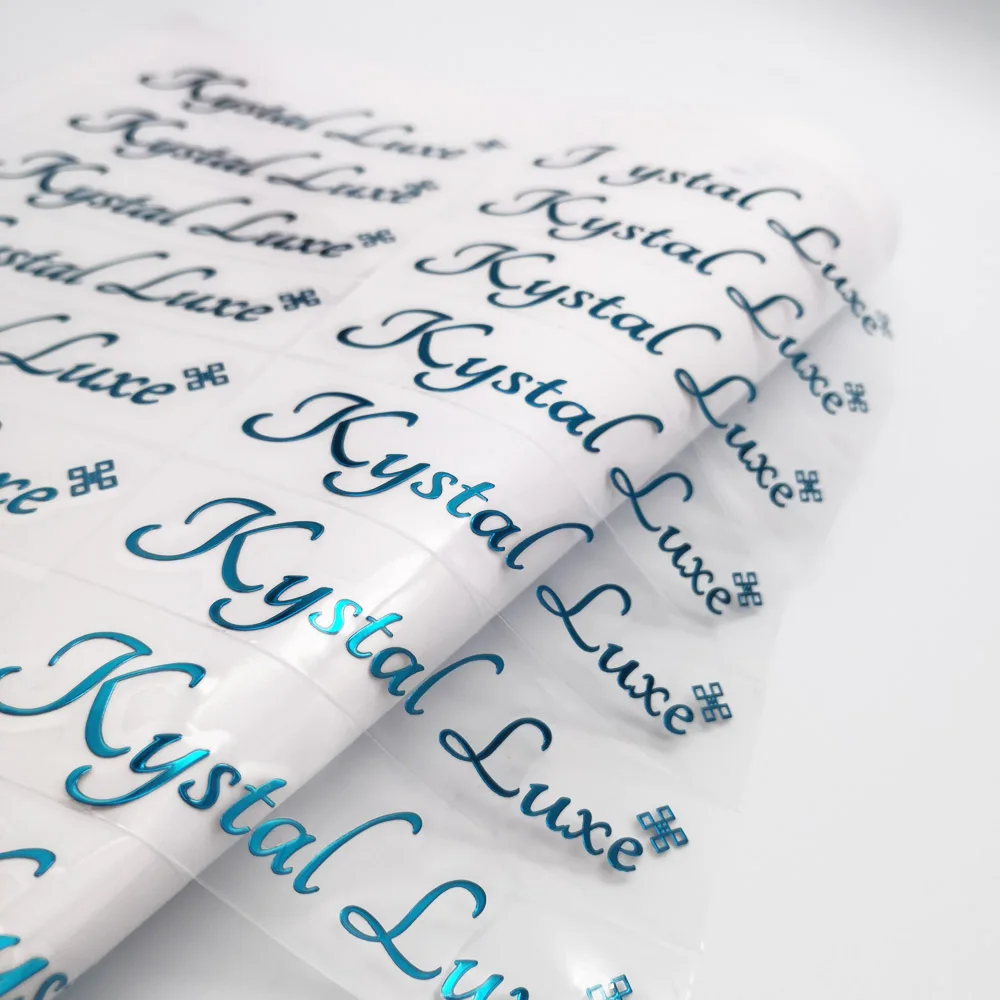 Kystal Luxe
Kystal Luxe
Kystal Luxe
ystal Luxe
Luxe
xe
J ystal Luxe
Kystal Luxe
Kystal Luxe
Kystal Luxe
Kystal Luxe
Kystal Luxe
Kystal Lux
ys